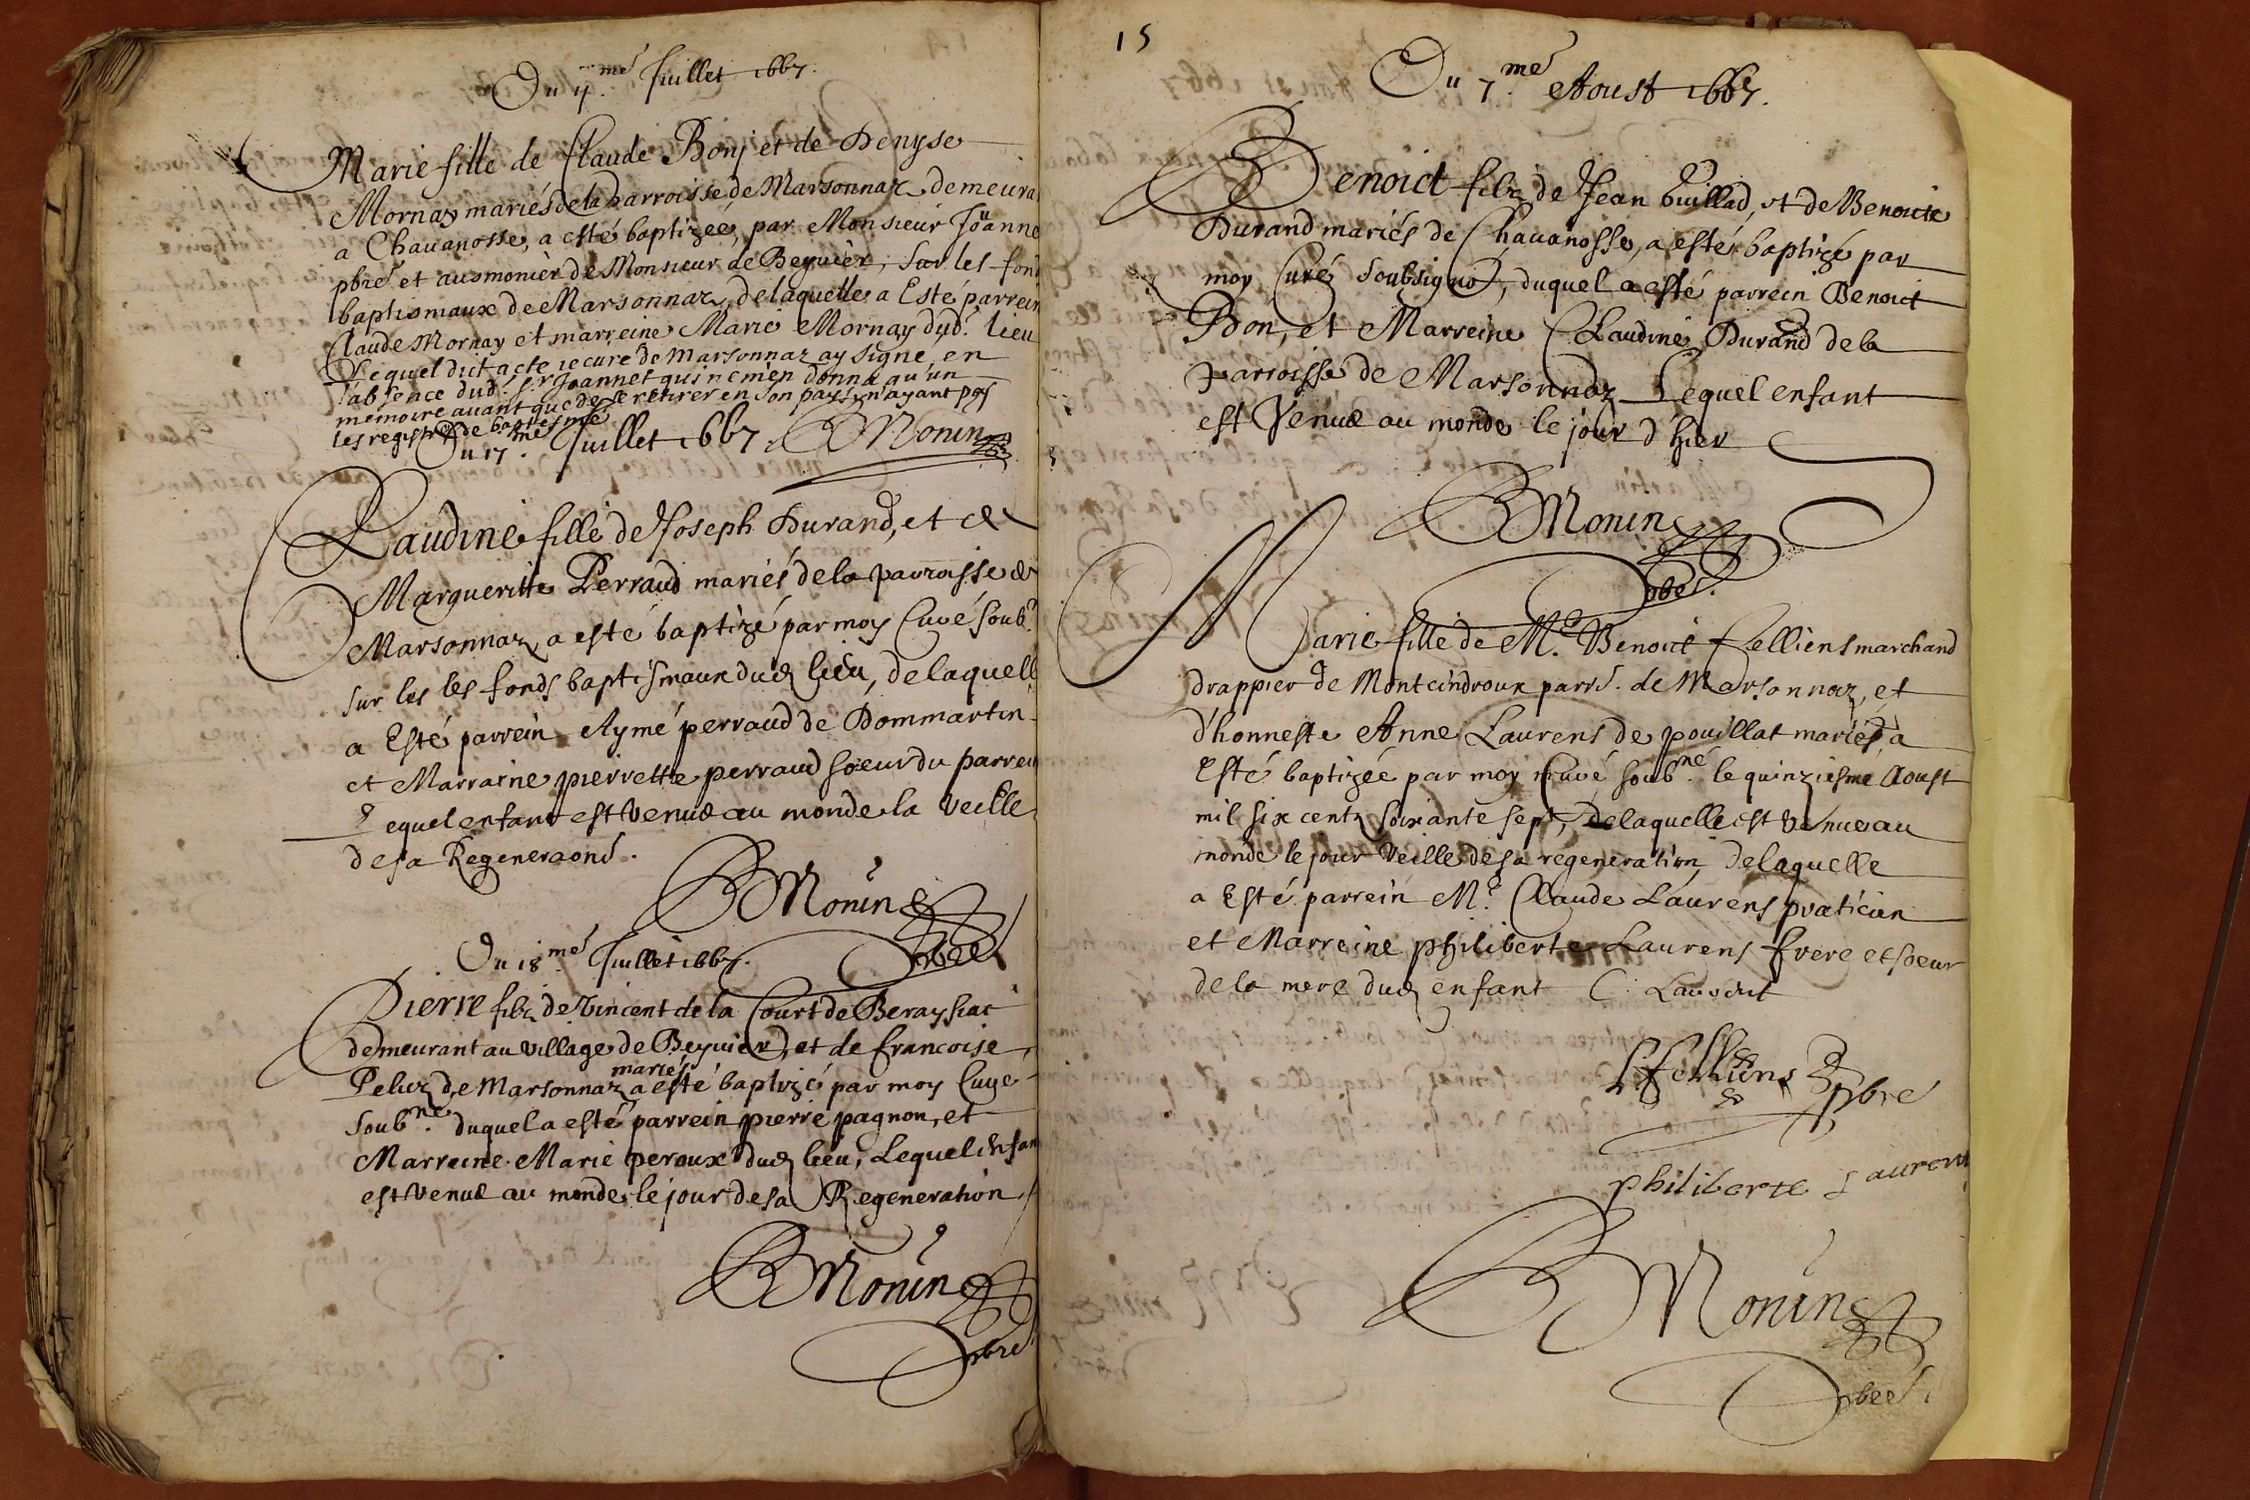 Du 4.me Juillet 1667.
Marie fille de Claude Bonj et de Denyse
Mornay mariés de la parroisse de Marsonnaz demeura
a Chauanosse, a esté baptizeé, par Monsieur Joanne
pbre et ausmonier de Monsieur de Beyuier, sur les fond
baptismaux de Marsonnaz, de laquelle a Esté parrein
Claude Mornay et marreine Marie Mornay dud. lieu
Lequel dict acte je curé de Marsonnaz ay signé en
l'absence dud. Sr Joannet qui ne m'en donna qu'un
memoire auant que de se retirer en son pays n'ayant pas
les registres de baptesme
Du 17.me Juillet 1667. BMonin
Claudine fille de Joseph Durand, et de
Margueritte Perraud mariés de la parroisse de
Marsonnaz, a esté baptizé par moy Curé soub.
sur les les fonds baptismaux dud lieu, de laquell
a Esté parrein Aymé perraud de Dommartin
et Marraine pierrette perraud soeur du parrein
Lequel enfant est Venue au monde la veille
de sa Regeneraons.
BMonin
pbre
Du 18.me Juillet 1667.
Pierre filz de Vincent de la Court de Beraysiat
demeurant au village de Beyuier, et de francoise
mariés
Peluz de Marsonnaz a esté baptizé par moy Cure
soub.né duquel a esté parrein pierre pagnon, et
Marreine Marie peroux dud lieu, Lequel Enfan
est Venue au monde le jour de sa Regeneration
BMonin
pbre
15
Du 7.me Aoust 1667.
Benoict filz de Jean Guillad, et de Benoite
Durand mariés de Chauanosse, a esté baptizé par
moy Curé soubsigné, duquel a esté parrein Benoict
Bon, et Marreine Claudine Durand de la
parroisse de Marsonnaz Lequel enfant
est Venue au monde le jour d'hier
BMonin
pbre.
Marie fille de M.e Benoict felliens marchand
drappier de Montcindroux parrs. de Marsonnaz, et
d'honneste Anne Laurens de pouillat mariés, a
Esté baptizeé par moy Curé soub.né le quinziesme Aoust
mil six centz soixante sept, de laquelle est venue au
monde le jour veille de sa regeneration, de laquelle
a Esté parrein M.e Claude Laurens praticien
et Marreine philiberte Laurens frere et soeur
de la mere dud enfant C. Laurent
felliens pbre
philiberte Laurens
BMonin
pbre